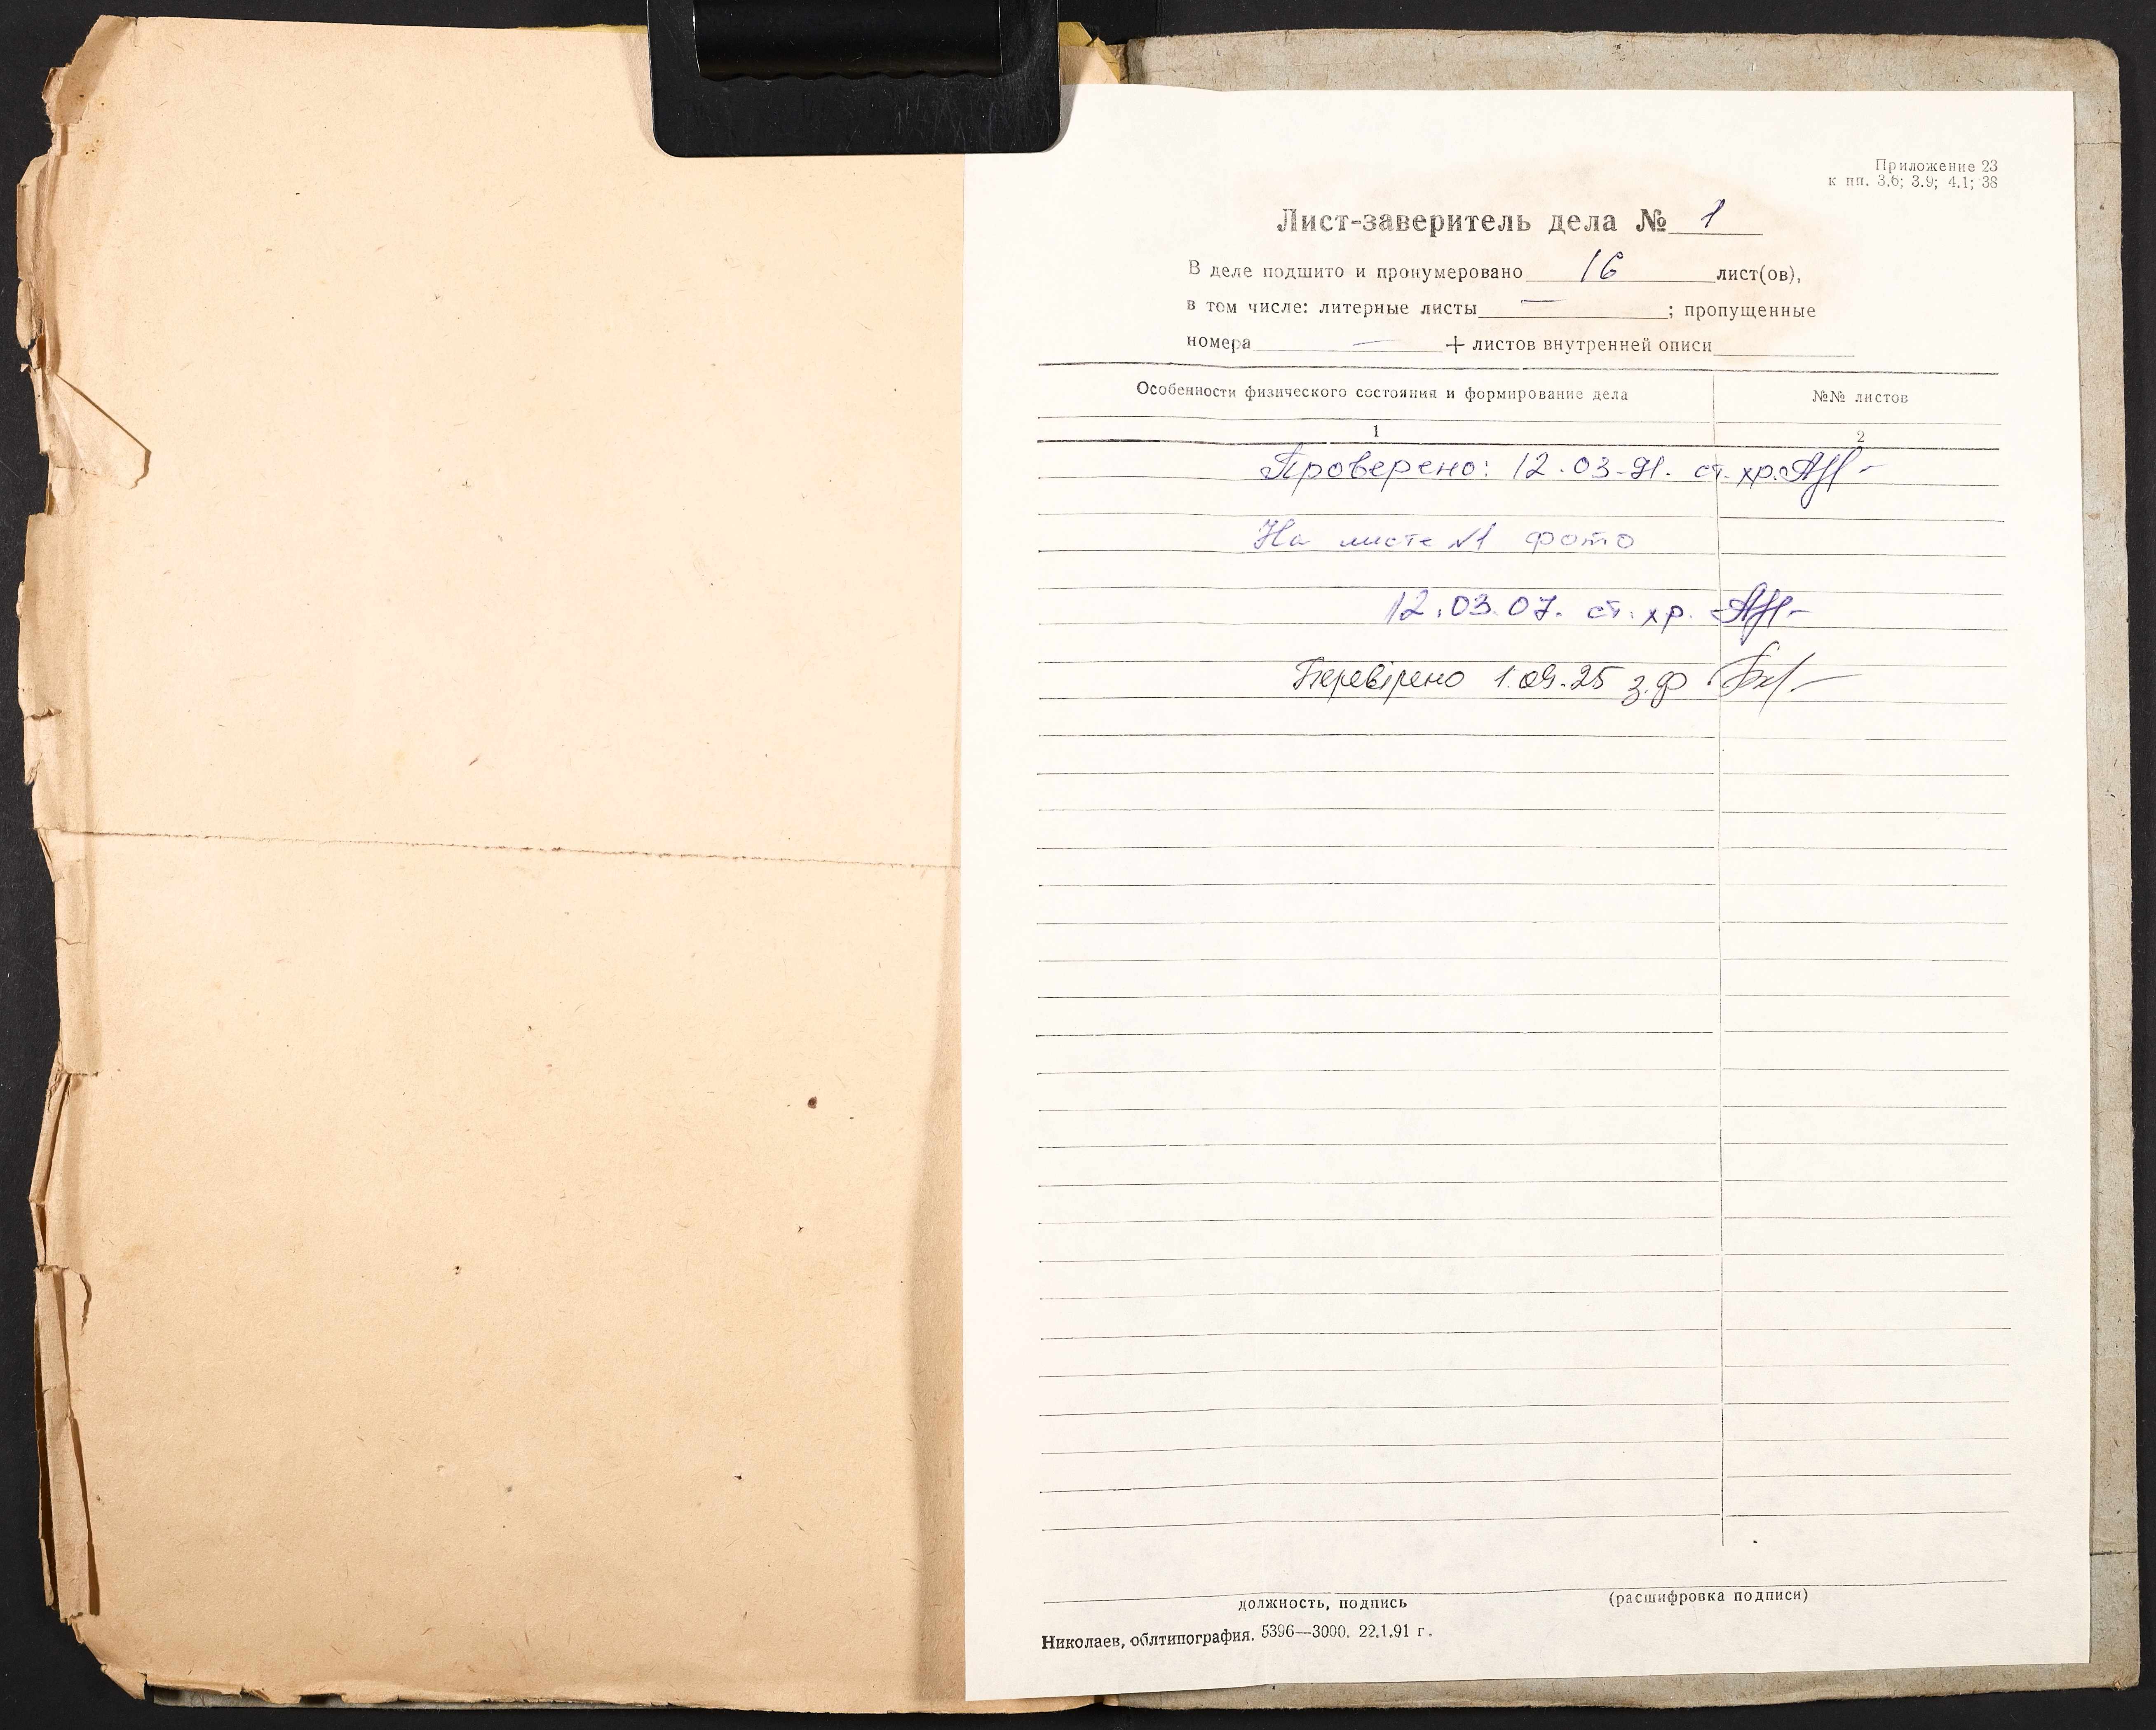 Приложение 23
к пп. 3.6; 3.9; 4.1; 38
Лист-заверитель дела № 1
В деле подшито и пронумеровано 16 лист(ов),
в том числе: литерные листы — ; пропущенные
номера — + листов внутренней описи
Особенности физического состояния и формирование дела №№ листов
1 2
Проверено: 12.03-91. ст. хр.
На листе №1 фото
12.03.07. ст. хр.
Перевірено 1.09.25 з.ф
должность, подпись (расшифровка подписи)
Николаев, облтипография. 5396—3000. 22.1.91 г.